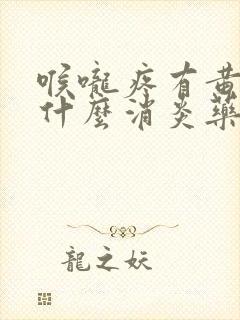 喉嚨疼有黃
什麼消炎藥
龍之妖